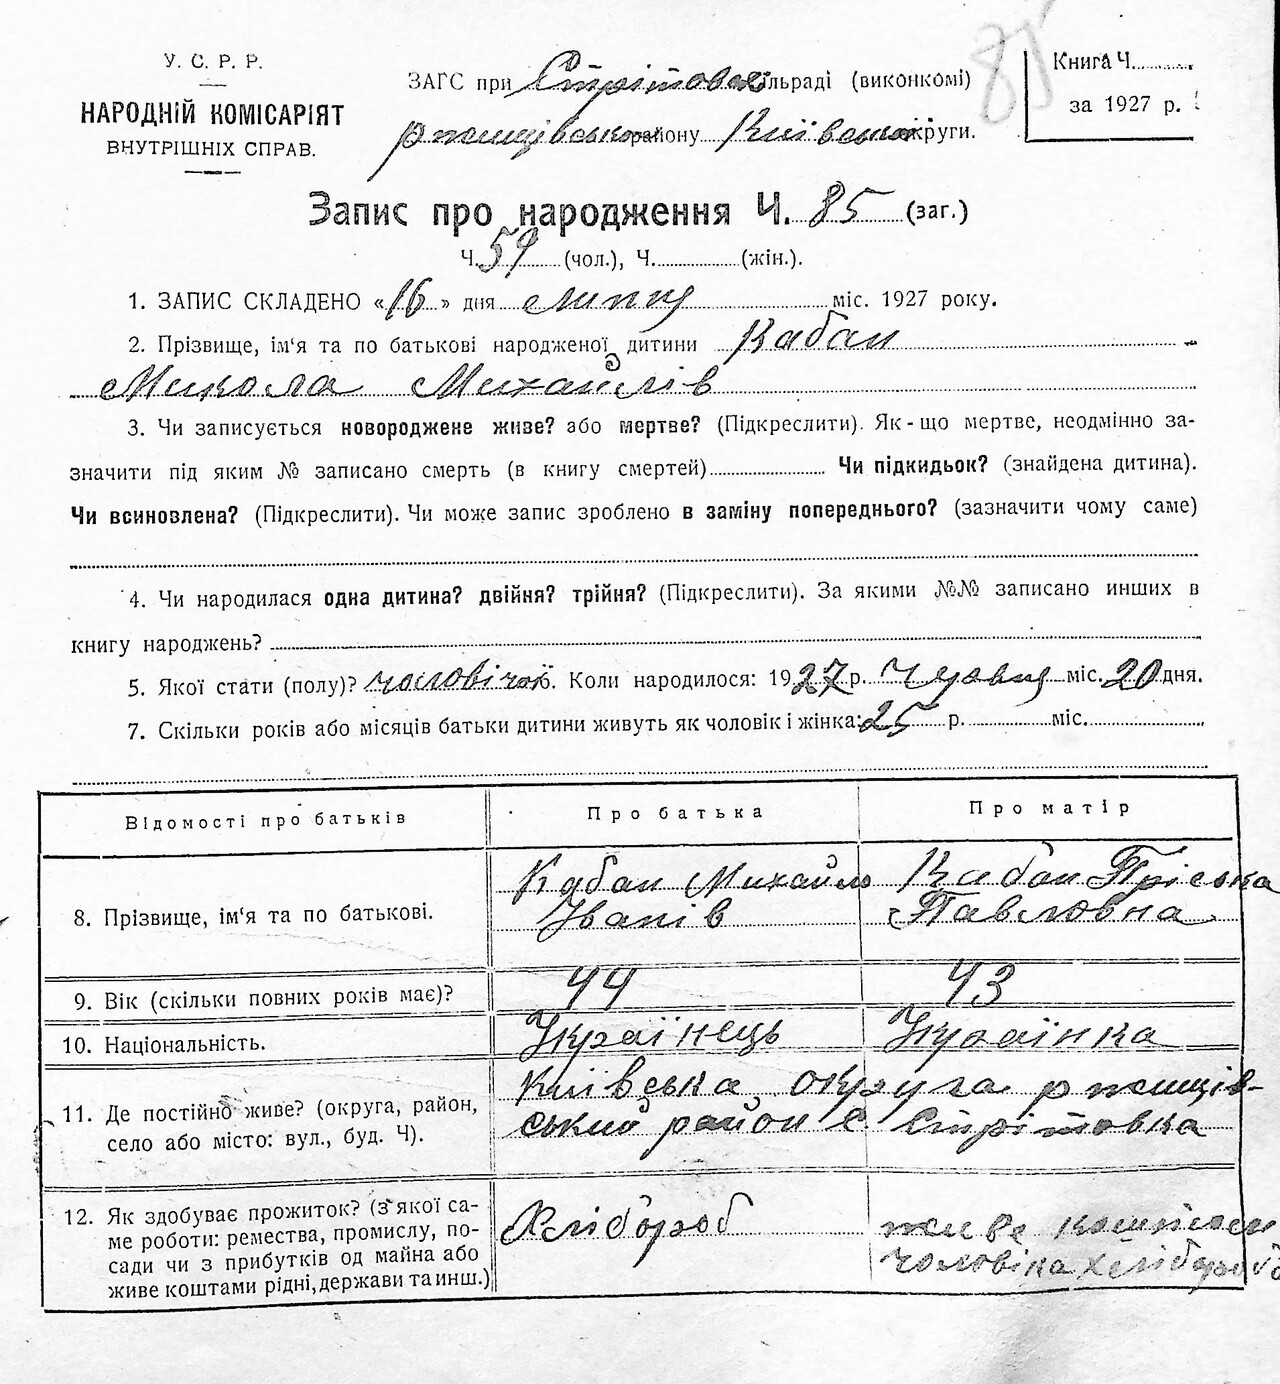 85
У. С. Р. Р.
НАРОДНІЙ КОМІСАРІЯТ
ВНУТРІШНІХ СПРАВ.
ЗАГС при Стрітовськ. сільраді (виконкомі)
ржищівського району Київської округи.
Книга Ч.
за 1927 р.
Запис про народження Ч. 85 (заг.)
Ч. 59 (чол.), Ч. (жін.).
1. ЗАПИС СКЛАДЕНО «16» дня липця міс. 1927 року.
2. Прізвище, ім'я та по батькові народженої дитини Кабан
Микола Михайлів
3. Чи записується новороджене живе? або мертве? (Підкреслити). Як-що мертве, неодмінно за-
значити під яким № записано смерть (в книгу смертей) Чи підкидьок? (знайдена дитина).
Чи всиновлена? (Підкреслити). Чи може запис зроблено в заміну попереднього? (зазначити чому саме)
4. Чи народилася одна дитина? двійня? трійня? (Підкреслити). За якими №№ записано инших в
книгу народжень?
5. Якої стати (полу)? чоловічої. Коли народилося: 1927 р. Червця міс. 20 дня.
7. Скільки років або місяців батьки дитини живуть як чоловік і жінка: 25 р. міс.
Відомості про батьків Про батька Про матір
8. Прізвище, ім'я та по батькові. Кабан Михайло Іванів Кабан Пріська Павловна
9. Вік (скільки повних років має)? 44 43
10. Національність. Українець Українка
11. Де постійно живе? (округа, район, село або місто: вул., буд. Ч). Київська округа ржищів-
ський район с Стрітовка
12. Як здобуває прожиток? (з якої са-
ме роботи: ремества, промислу, по-
сади чи з прибутків од майна або
живе коштами рідні, держави та инш.)
Хлібороб
живе коштом
чоловіка хлібороба